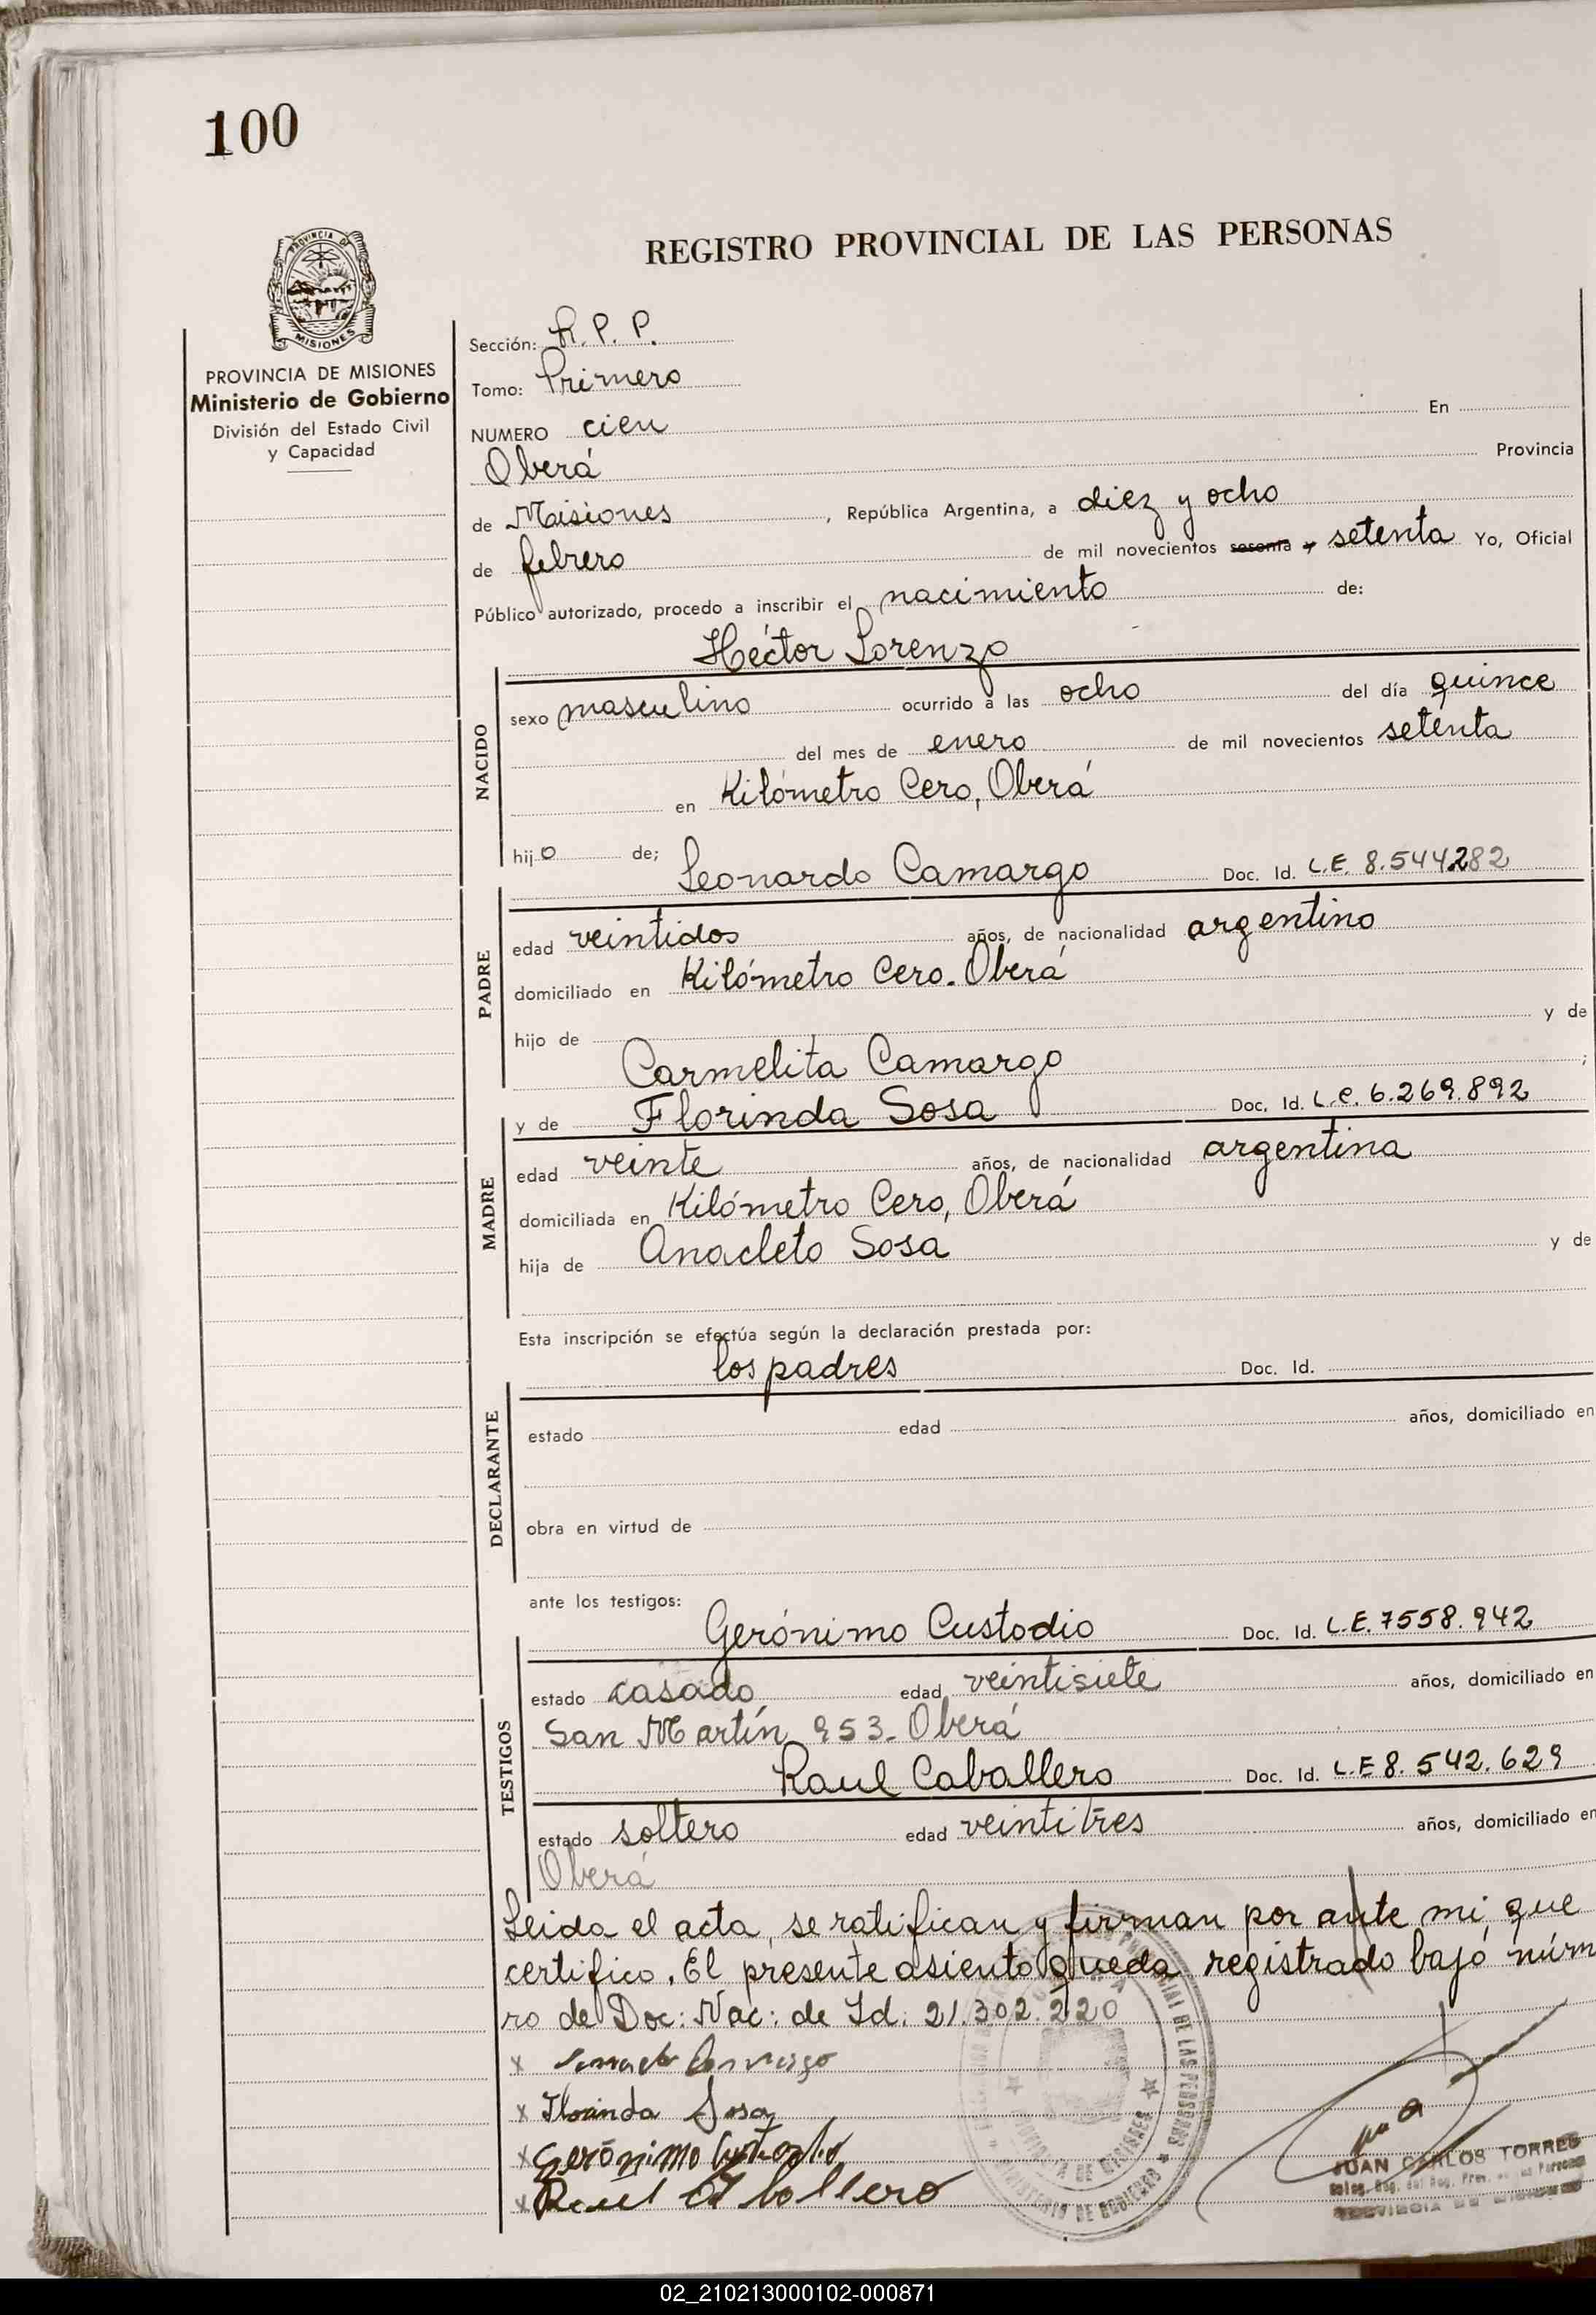 100
REGISTRO PROVINCIAL DE LAS PERSONAS
PROVINCIA DE
MISIONES
PROVINCIA DE MISIONES
Ministerio de Gobierno
División del Estado Civil
y Capacidad
Sección: R. P. P.
Tomo: Primero
NUMERO cien En
Oberá Provincia
de Misiones , República Argentina, a diez y ocho
de febrero de mil novecientos sesenta y setenta Yo, Oficial
Público autorizado, procedo a inscribir el nacimiento de:
Héctor Lorenzo
NACIDO
sexo masculino ocurrido a las ocho del día quince
del mes de enero de mil novecientos setenta
en Kilómetro Cero, Oberá
hijo de; Leonardo Camargo Doc. Id. L.E. 8.544282
PADRE
edad veintidos años, de nacionalidad argentino
domiciliado en Kilómetro Cero. Oberá
hijo de y de
Carmelita Camargo ;
y de Florinda Sosa Doc. Id. L.C. 6.269.892
MADRE
edad veinte años, de nacionalidad argentina
domiciliada en Kilómetro Cero, Oberá
hija de Anacleto Sosa y de
Esta inscripción se efectúa según la declaración prestada por:
los padres Doc. Id.
DECLARANTE
estado edad años, domiciliado en
obra en virtud de
ante los testigos:
Gerónimo Custodio Doc. Id. L.E. 7558.942
TESTIGOS
estado casado edad veintisiete años, domiciliado en
San Martín 953- Oberá
Raul Caballero Doc. Id. L.E 8. 542. 629
estado soltero edad veintitres años, domiciliado en
Oberá
Leida el acta, se ratifican y firman por ante mi, que
certifico. El presente asiento queda registrado bajo núm
ro de Doc: Nac: de Id: 21.302.220
x Camargo
x Florinda Sosa
x Gerónimo Custodio
x Raul Caballero
DE LAS PERSONAS
MINISTERIO DE GOBIERNO
PROVINCIA DE MISIONES
JUAN CARLOS TORRES
PROVINCIA DE MISIONES
02_210213000102-000871